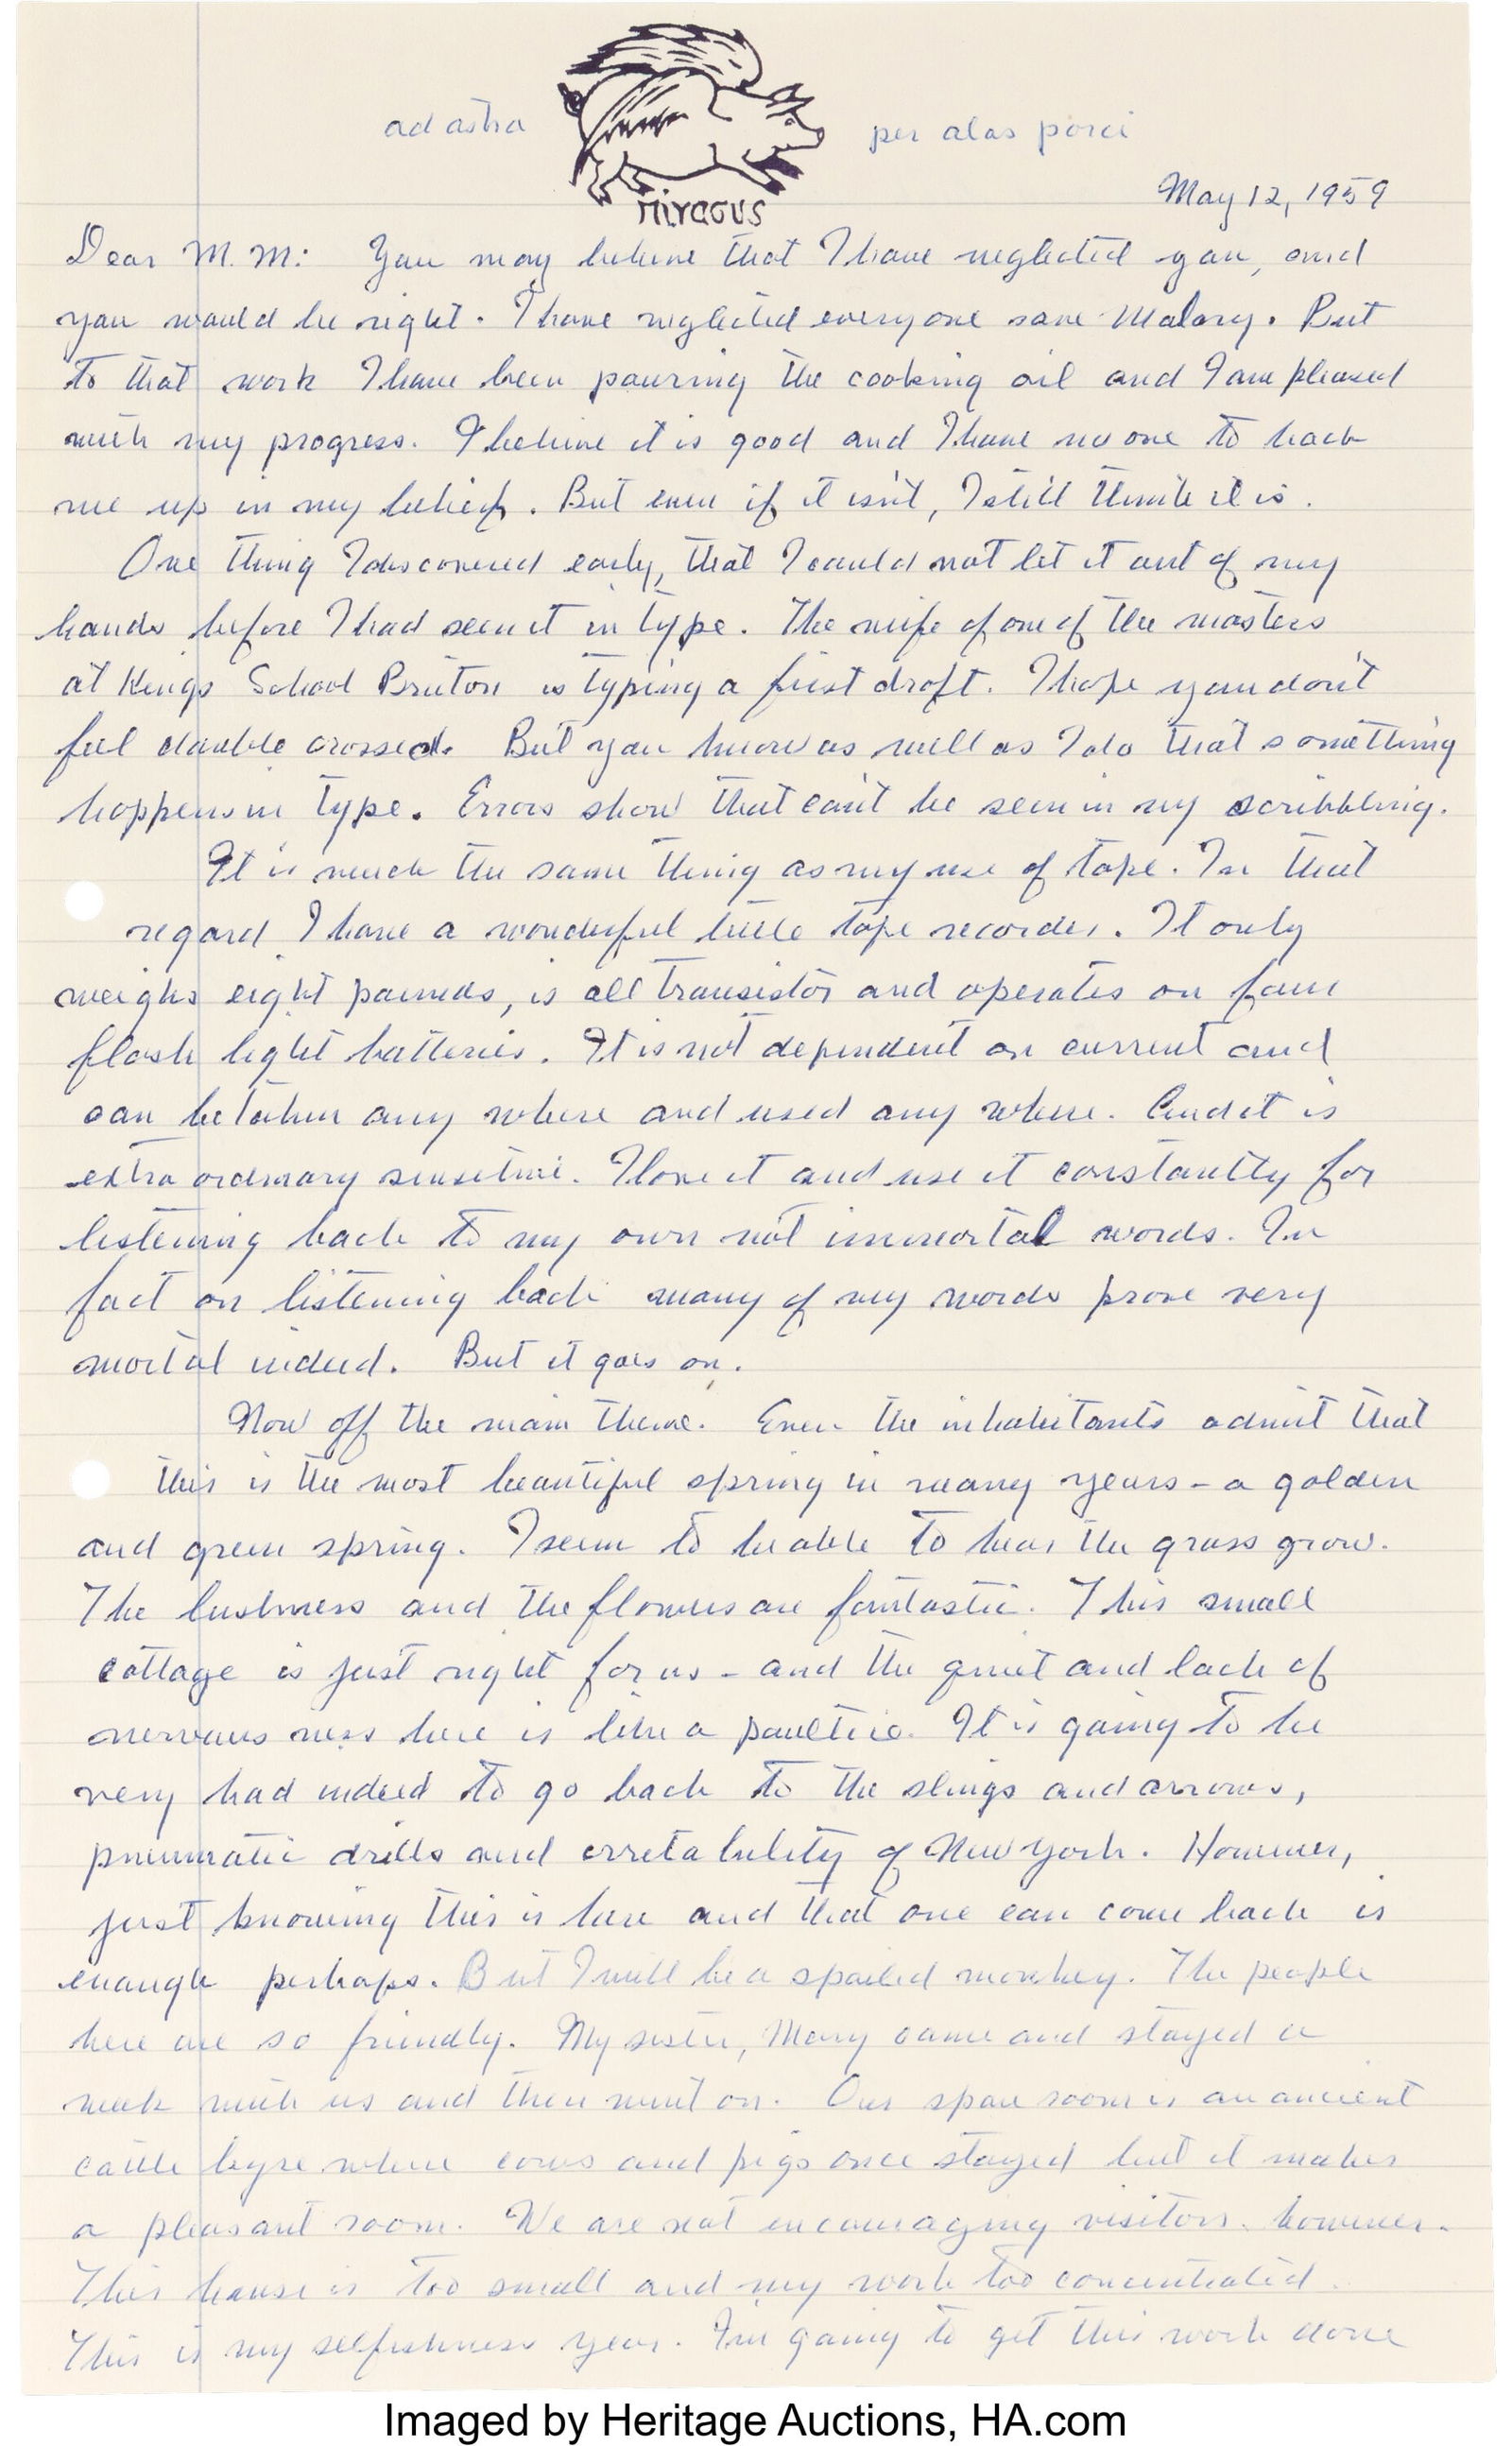 ad astra per alas porci
May 12, 1959
Dear M. M: You may believe that I have neglected you, and
you would be right. I have neglected everyone save Malory. But
to that work I have been pouring the cooking oil and I am pleased
with my progress. I believe it is good and I have no one to back
me up in my belief. But even if it isn't, I still think it is.
One thing I discovered early, that I could not let it out of my
hands before I had seen it in type. The wife of one of the masters
at Kings School Bruton is typing a first draft. I hope you don't
feel double crossed. But you know as well as I do that something
happens in type. Errors show that can't be seen in my scribbling.
It is much the same thing as my use of tape. In that
regard I have a wonderful little tape recorder. It only
weighs eight pounds, is all transistor and operates on four
flash light batteries. It is not dependent on current and
can be taken any where and used any where. And it is
extra ordinary sensitive. I love it and use it constantly for
listening back to my own not immortal words. In
fact on listening back many of my words prove very
mortal indeed. But it goes on.
Now off the main theme. Even the inhabitants admit that
this is the most beautiful spring in many years - a golden
and green spring. I seem to be able to hear the grass grow.
The lushness and the flowers are fantastic. This small
cottage is just right for us - and the quiet and lack of
nervous ness here is like a poultice. It is going to be
very bad indeed to go back to the slings and arrows,
pneumatic drills and irretability of New York. However,
just knowing this is here and that one can come back is
enough perhaps. But I will be a spoiled monkey. The people
here are so friendly. My sister, Mary came and stayed a
week with us and then went on. Our spare room is an ancient
cattle byre where cows and pigs once stayed but it makes
a pleasant room. We are not encouraging visitors. however.
This house is too small and my work too concentrated.
This is my selfishness year. I'm going to get this work done
Imaged by Heritage Auctions, HA.com